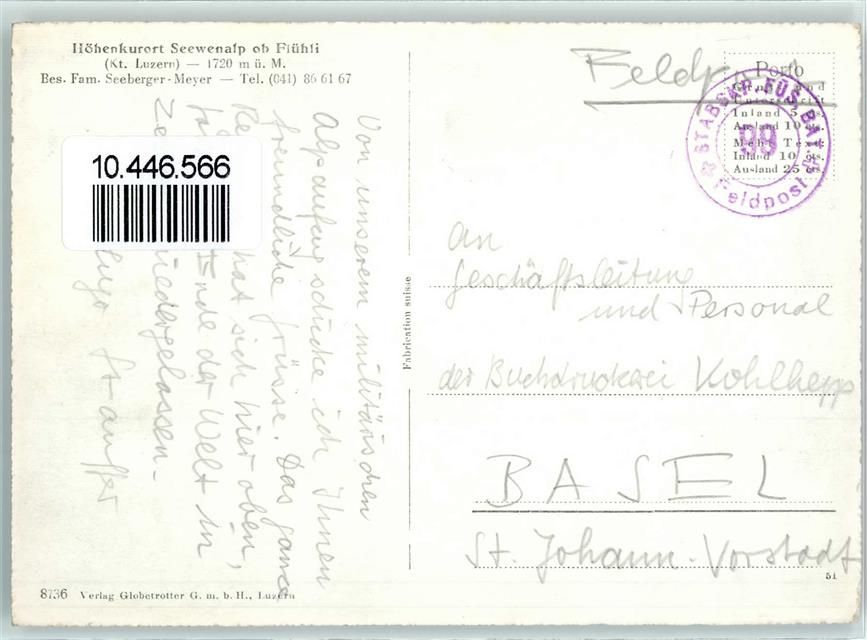 Höhenkurort Seewenalp ob Flühli
(Kt. Luzern) — 1720 m ü. M.
Bes. Fam. Seeberger-Meyer — Tel. (041) 86 61 67
10.446.566
Von unserem militärischen
Alpaufzug schicke ich Ihnen
freundliche Grüsse. Das ganze
hat sich hier oben,
Ende der Welt in
niedergelassen.
Stauffer
8736 Verlag Globetrotter G. m. b. H., Luzern
Fabrication suisse
Porto
Inland 5 cts.
Ausland 10 cts.
Mehr Text:
Inland 10 cts.
Ausland 25 cts.
STABSKP. FÜS. BAT.
99
Feldpost
An
Geschäftsleitung
und Personal
der Buchdruckerei Kohlhepp
BASEL
St. Johann-Vorstadt
51